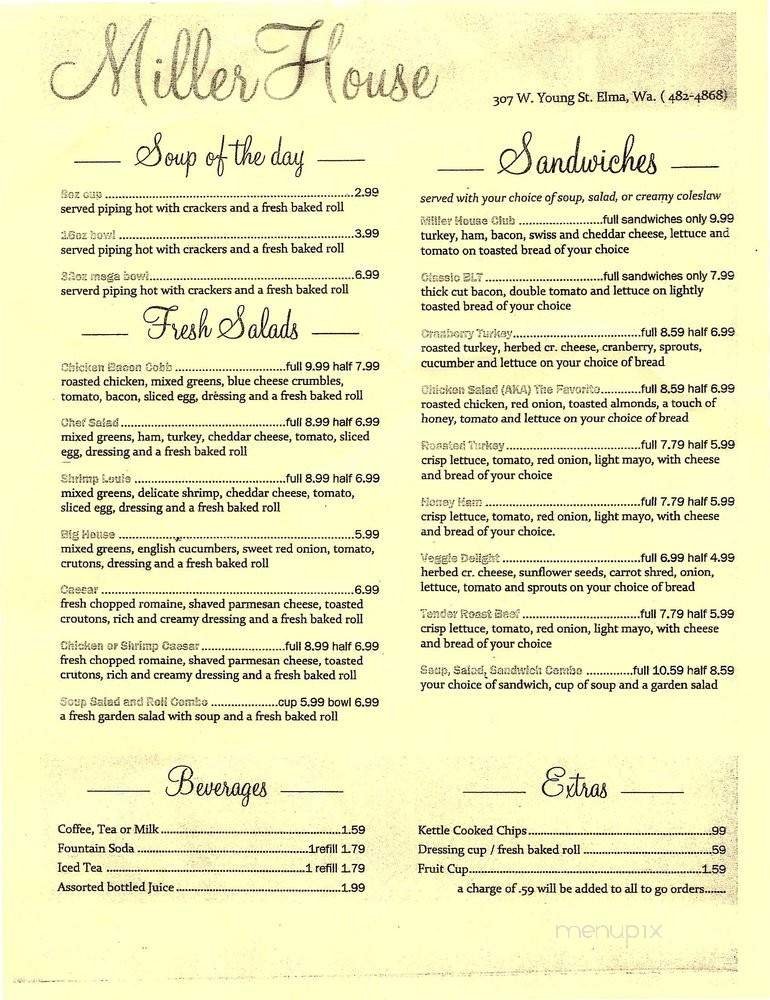 Miller House
307 W. Young St. Elma, Wa. ( 482-4868)
Soup of the day
8oz cup ..........2.99
served piping hot with crackers and a fresh baked roll
16oz bowl ..........3.99
served piping hot with crackers and a fresh baked roll
32oz mega bowl..........6.99
serverd piping hot with crackers and a fresh baked roll
Fresh Salads
Chicken Bacon Cobb ..........full 9.99 half 7.99
roasted chicken, mixed greens, blue cheese crumbles,
tomato, bacon, sliced egg, dressing and a fresh baked roll
Chef Salad..........full 8.99 half 6.99
mixed greens, ham, turkey, cheddar cheese, tomato, sliced
egg, dressing and a fresh baked roll
Shrimp Louie ..........full 8.99 half 6.99
mixed greens, delicate shrimp, cheddar cheese, tomato,
sliced egg, dressing and a fresh baked roll
Big House ..........5.99
mixed greens, english cucumbers, sweet red onion, tomato,
crutons, dressing and a fresh baked roll
Caesar ..........6.99
fresh chopped romaine, shaved parmesan cheese, toasted
croutons, rich and creamy dressing and a fresh baked roll
Chicken or Shrimp Caesar..........full 8.99 half 6.99
fresh chopped romaine, shaved parmesan cheese, toasted
crutons, rich and creamy dressing and a fresh baked roll
Soup Salad and Roll Combo ..........cup 5.99 bowl 6.99
a fresh garden salad with soup and a fresh baked roll
Sandwiches
served with your choice of soup, salad, or creamy coleslaw
Miller House Club ..........full sandwiches only 9.99
turkey, ham, bacon, swiss and cheddar cheese, lettuce and
tomato on toasted bread of your choice
Classic BLT ..........full sandwiches only 7.99
thick cut bacon, double tomato and lettuce on lightly
toasted bread of your choice
Cranberry Turkey..........full 8.59 half 6.99
roasted turkey, herbed cr. cheese, cranberry, sprouts,
cucumber and lettuce on your choice of bread
Chicken Salad (AKA) The Favorite..........full 8.59 half 6.99
roasted chicken, red onion, toasted almonds, a touch of
honey, tomato and lettuce on your choice of bread
Roasted Turkey..........full 7.79 half 5.99
crisp lettuce, tomato, red onion, light mayo, with cheese
and bread of your choice
Honey Ham ..........full 7.79 half 5.99
crisp lettuce, tomato, red onion, light mayo, with cheese
and bread of your choice.
Veggie Delight ..........full 6.99 half 4.99
herbed cr. cheese, sunflower seeds, carrot shred, onion,
lettuce, tomato and sprouts on your choice of bread
Tender Roast Beef ..........full 7.79 half 5.99
crisp lettuce, tomato, red onion, light mayo, with cheese
and bread of your choice
Soup, Salad, Sandwich Combo ..........full 10.59 half 8.59
your choice of sandwich, cup of soup and a garden salad
Beverages
Coffee, Tea or Milk..........1.59
Fountain Soda ..........1refill 1.79
Iced Tea ..........1 refill 1.79
Assorted bottled Juice..........1.99
Extras
Kettle Cooked Chips..........99
Dressing cup / fresh baked roll ..........59
Fruit Cup..........1.59
a charge of .59 will be added to all to go orders.......
menupix